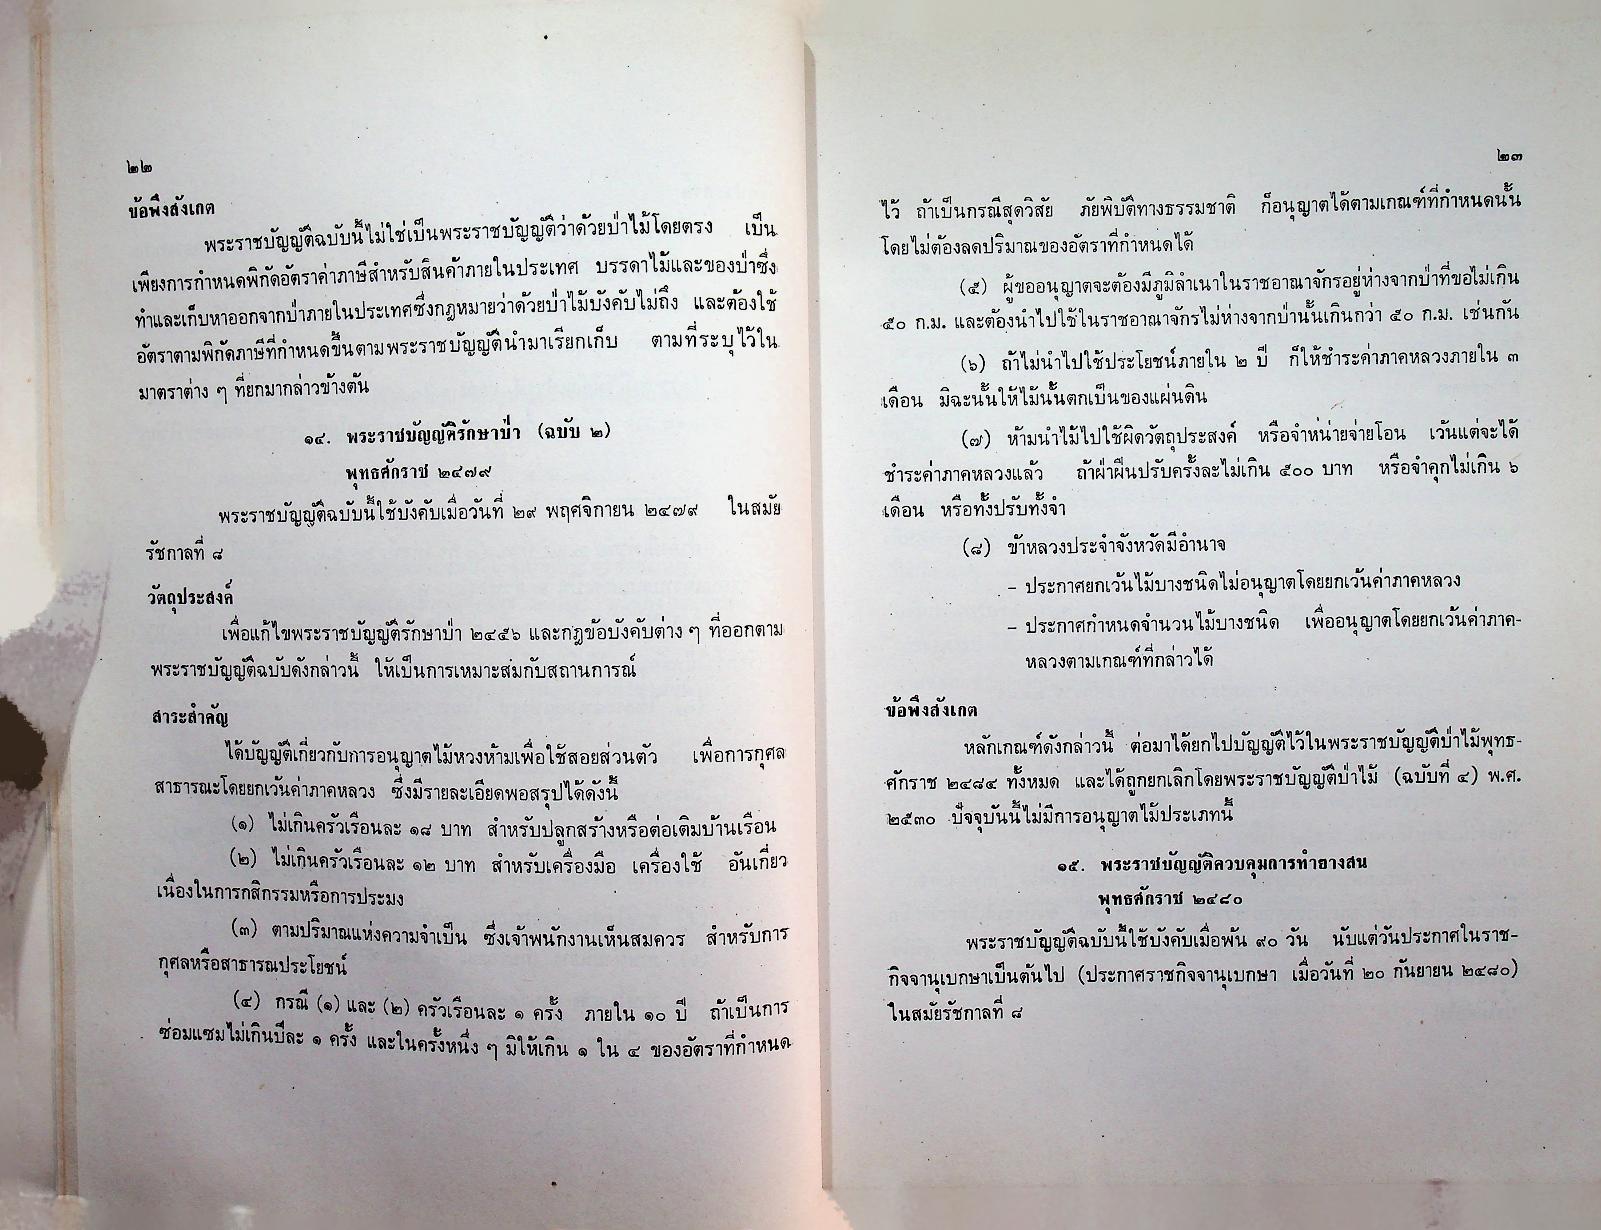 ๒๒
ข้อพึงสังเกต
พระราชบัญญัติฉบับนี้ไม่ใช่เป็นพระราชบัญญัติว่าด้วยป่าไม้โดยตรง เป็น
เพียงการกำหนดพิกัดอัตราค่าภาษีสำหรับสินค้าภายในประเทศ บรรดาไม้และของป่าซึ่ง
ทำและเก็บหาออกจากป่าภายในประเทศซึ่งกฎหมายว่าด้วยป่าไม้บังคับไม่ถึง และต้องใช้
อัตราตามพิกัดภาษีที่กำหนดขึ้นตามพระราชบัญญัตินำมาเรียกเก็บ ตามที่ระบุไว้ใน
มาตราต่าง ๆ ที่ยกมากล่าวข้างต้น
๑๔. พระราชบัญญัติรักษาป่า (ฉบับ ๒)
พุทธศักราช ๒๔๗๙
พระราชบัญญัติฉบับนี้ใช้บังคับเมื่อวันที่ ๒๙ พฤศจิกายน ๒๔๗๙ ในสมัย
รัชกาลที่ ๘
วัตถุประสงค์
เพื่อแก้ไขพระราชบัญญัติรักษาป่า ๒๔๕๖ และกฎข้อบังคับต่าง ๆ ที่ออกตาม
พระราชบัญญัติฉบับดังกล่าวนี้ ให้เป็นการเหมาะสมกับสถานการณ์
สาระสำคัญ
ได้บัญญัติเกี่ยวกับการอนุญาตไม้หวงห้ามเพื่อใช้สอยส่วนตัว เพื่อการกุศล
สาธารณะโดยยกเว้นค่าภาคหลวง ซึ่งมีรายละเอียดพอสรุปได้ดังนี้
(๑) ไม่เกินครัวเรือนละ ๑๘ บาท สำหรับปลูกสร้างหรือต่อเติมบ้านเรือน
(๒) ไม่เกินครัวเรือนละ ๑๒ บาท สำหรับเครื่องมือ เครื่องใช้ อันเกี่ยว
เนื่องในการกสิกรรมหรือการประมง
(๓) ตามปริมาณแห่งความจำเป็น ซึ่งเจ้าพนักงานเห็นสมควร สำหรับการ
กุศลหรือสาธารณประโยชน์
(๔) กรณี (๑) และ (๒) ครัวเรือนละ ๑ ครั้ง ภายใน ๑๐ ปี ถ้าเป็นการ
ซ่อมแซมไม่เกินปีละ ๑ ครั้ง และในครั้งหนึ่ง ๆ มิให้เกิน ๑ ใน ๔ ของอัตราที่กำหนด
๒๓
ไว้ ถ้าเป็นกรณีสุดวิสัย ภัยพิบัติทางธรรมชาติ ก็อนุญาตได้ตามเกณฑ์ที่กำหนดนั้น
โดยไม่ต้องลดปริมาณของอัตราที่กำหนดได้
(๕) ผู้ขออนุญาตจะต้องมีภูมิลำเนาในราชอาณาจักรอยู่ห่างจากป่าที่ขอไม่เกิน
๕๐ ก.ม. และต้องนำไปใช้ในราชอาณาจักรไม่ห่างจากป่านั้นเกินกว่า ๕๐ ก.ม. เช่นกัน
(๖) ถ้าไม่นำไปใช้ประโยชน์ภายใน ๒ ปี ก็ให้ชำระค่าภาคหลวงภายใน ๓
เดือน มิฉะนั้นให้ไม้นั้นตกเป็นของแผ่นดิน
(๗) ห้ามนำไม้ไปใช้ผิดวัตถุประสงค์ หรือจำหน่ายจ่ายโอน เว้นแต่จะได้
ชำระค่าภาคหลวงแล้ว ถ้าฝ่าฝืนปรับครั้งละไม่เกิน ๕๐๐ บาท หรือจำคุกไม่เกิน ๖
เดือน หรือทั้งปรับทั้งจำ
(๘) ข้าหลวงประจำจังหวัดมีอำนาจ
- ประกาศยกเว้นไม้บางชนิดไม่อนุญาตโดยยกเว้นค่าภาคหลวง
- ประกาศกำหนดจำนวนไม้บางชนิด เพื่ออนุญาตโดยยกเว้นค่าภาค-
หลวงตามเกณฑ์ที่กล่าวได้
ข้อพึงสังเกต
หลักเกณฑ์ดังกล่าวนี้ ต่อมาได้ยกไปบัญญัติไว้ในพระราชบัญญัติป่าไม้พุทธ-
ศักราช ๒๔๘๔ ทั้งหมด และได้ถูกยกเลิกโดยพระราชบัญญัติป่าไม้ (ฉบับที่ ๔) พ.ศ.
๒๕๓๐ ปัจจุบันนี้ไม่มีการอนุญาตไม้ประเภทนี้
๑๕. พระราชบัญญัติควบคุมการทำยางสน
พุทธศักราช ๒๔๘๐
พระราชบัญญัติฉบับนี้ใช้บังคับเมื่อพ้น ๙๐ วัน นับแต่วันประกาศในราช-
กิจจานุเบกษาเป็นต้นไป (ประกาศราชกิจจานุเบกษา เมื่อวันที่ ๒๐ กันยายน ๒๔๘๐)
ในสมัยรัชกาลที่ ๘